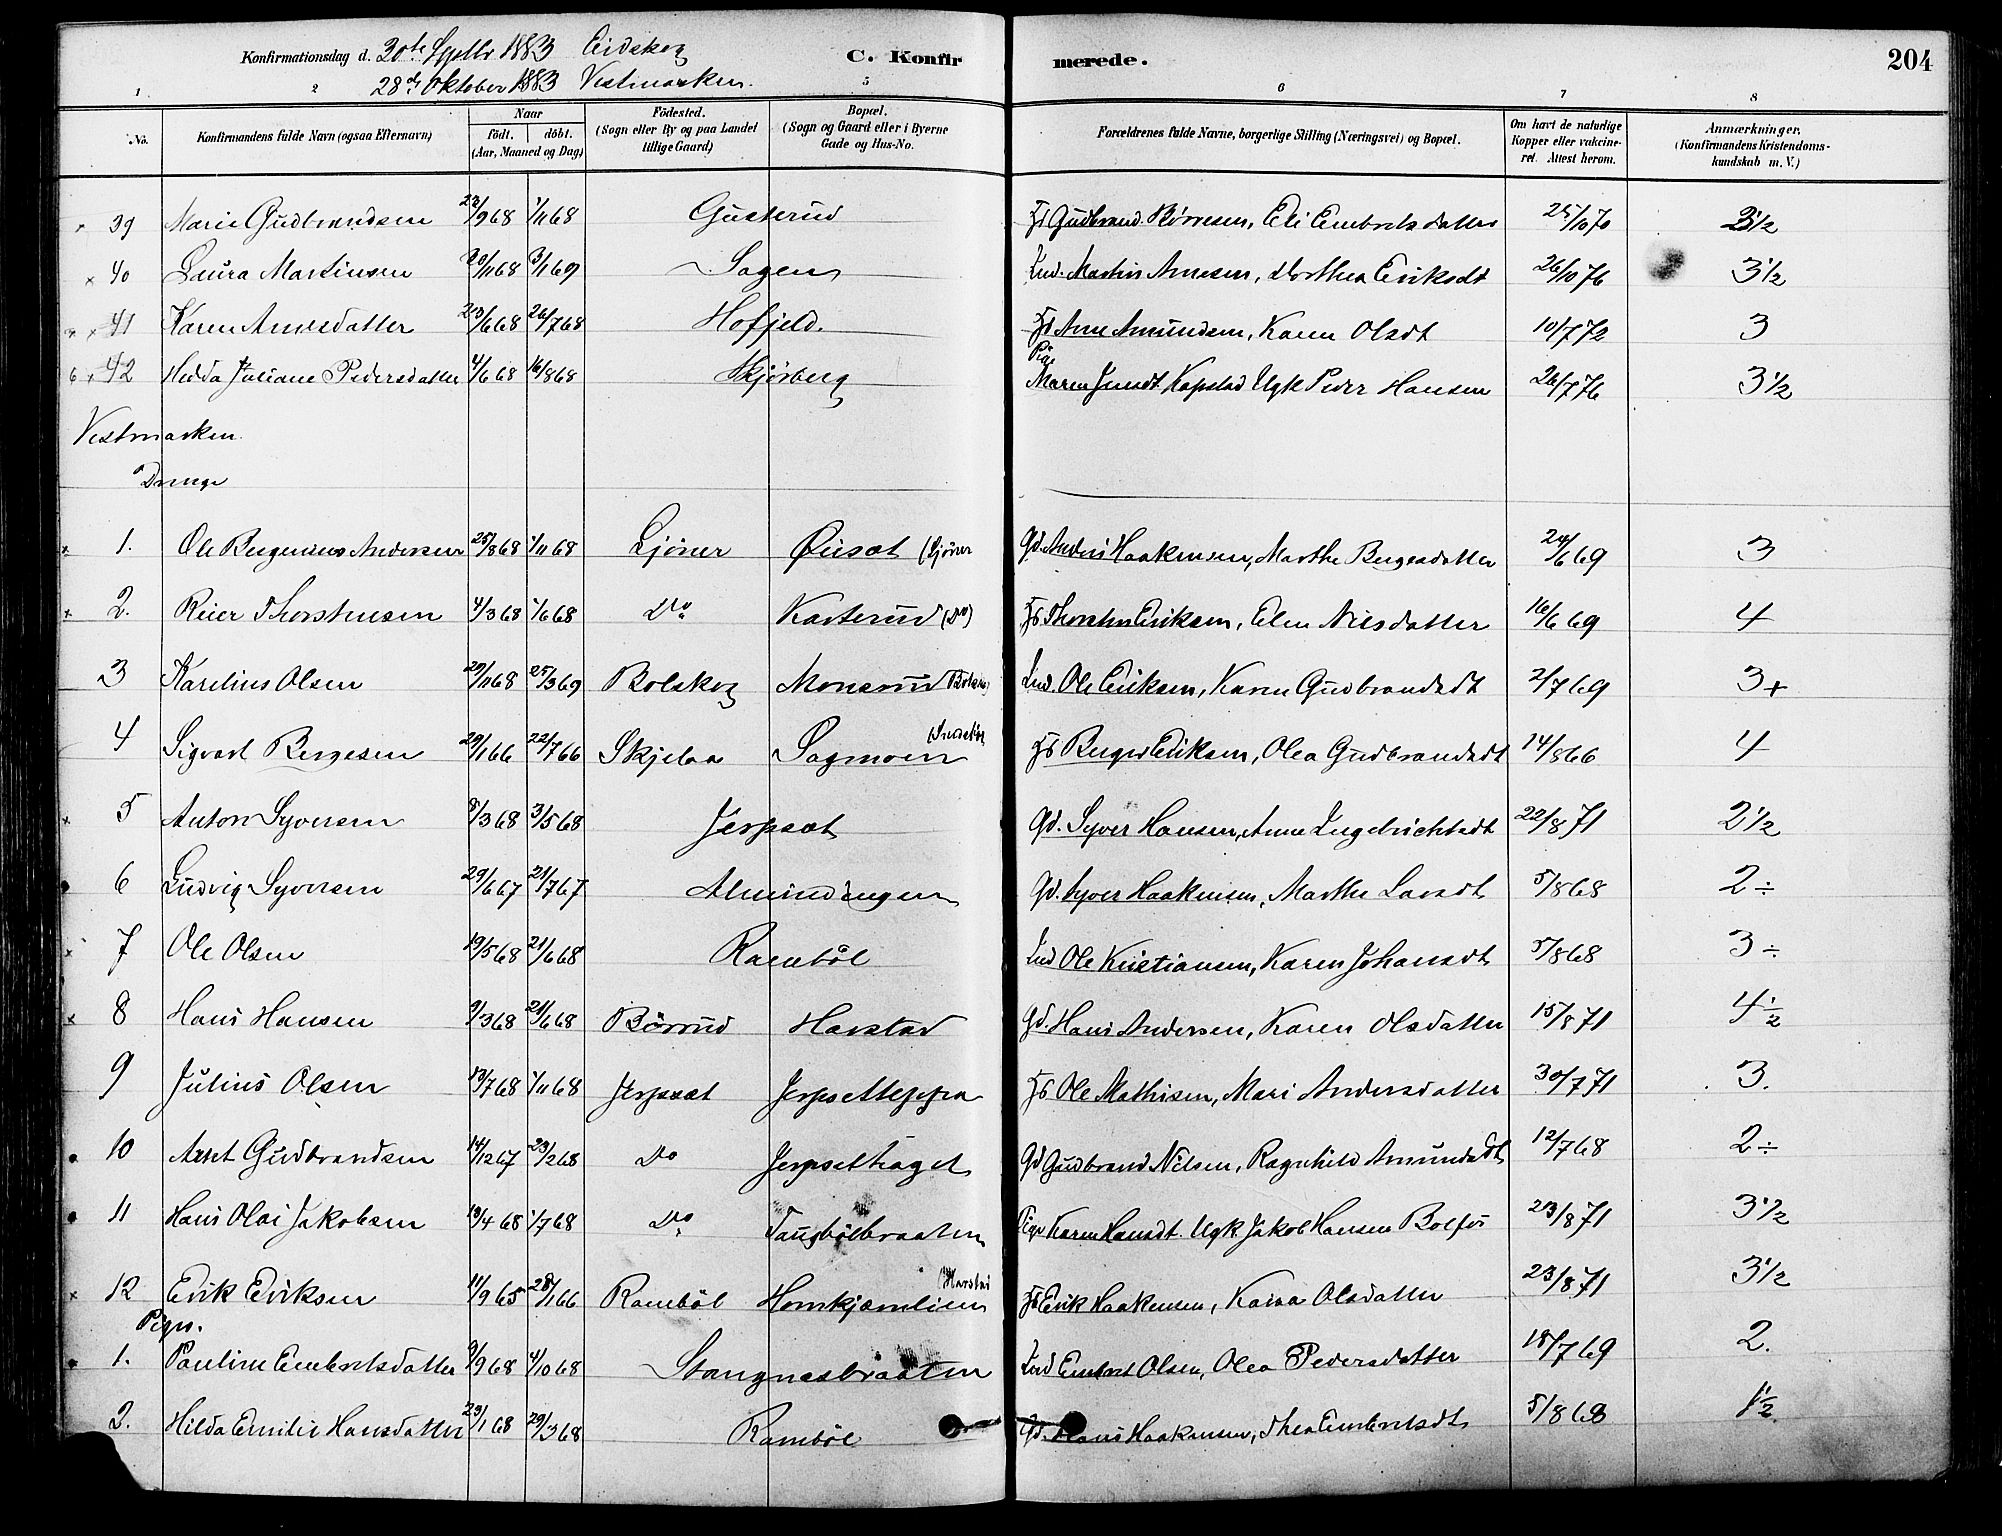 Konfirmationsdag d. 30te Septbr 1883 Eidskog C. Konfirmerede. 204
28de Oktober 1883 Vestmarken.
1 2 5 6 7 8
No. Konfirmandens fulde Navn (ogsaa Efternavn) Naar födt. döbt. (Aar, Maaned og Dag) Födested. (Sogn eller By og paa Landet tillige Gaard) Bopæl. (Sogn og Gaard eller i Byerne Gade og Hus-No. Forældrenes fulde Navne, borgerlige Stilling (Næringsvei) og Bopæl. Om havt de naturlige Kopper eller vakcineret. Attest herom. Anmærkninger. (Konfirmandens Kristendomskundskab m. V.)
39 Marie Gudbrandsen 22/9 68 1/11 68 Gusterud Gudbrand Børresen, Eli Embretsdatter 25/10 70 3 1/2
40 Laura Martinsen 20/11 68 3/1 69 Sagen Ind. Martin Arnesen, Dorthea Eriksdt 26/10 76 3 1/2
41 Karen Arnesdatter 23/6 68 26/7 68 Hofjeld. Arne Amundsen, Karen Olsdt 10/7 72 3
42 Hedda Juliane Pedersdatter 4/6 68 16/8 68 Skjørberg Pige Maren Jensdt. Kopstad Ugk Peder Hansen 26/7 76 3 1/2
Vestmarken
Drenge
1. Ole Bergenius Andersen 25/8 68 1/11 68 Ljöner Öiesæt (Ljöner Gd. Anders Haakensen, Marthe Bergesdatter 24/6 69 3
2. Reier Thorstensen 4/3 68 1/6 68 Do Kasterud (Do) Thorsten Eriksen, Elen Nilsdatter 16/6 69 4
3 Karelius Olsen 29/11 68 25/3 69 Bolskog Monerud Ind. Ole Eriksen, Karen Gudbrandsdt 2/7 69 3+
4 Sigvart Bergesen 29/1 66 22/7 66 Skjelaa Sagmoen Berger Eriksen, Olea Gudbrandsdt 14/8 66 4
5 Anton Syversen 8/3 68 3/5 68 Jerpsæt Gd. Syver Hansen, Anne Ingebrichtsdt 22/8 71 2 1/2
6 Ludvig Syversen 29/6 67 21/7 67 Almindingen Gd. Syver Haakensen, Marthe Larsdt 5/8 68 2÷
7 Ole Olsen 19/5 68 21/6 68 Rambøl Ind Ole Kristiansen, Karen Johansdt 5/8 68 3÷
8 Hans Hansen 9/3 68 21/6 68 Børrud Harstad Gd. Hans Andersen, Karen Olsdatter 15/8 71 4 1/2
9 Julius Olsen 13/7 68 1/11 68 Jerpsæt Jerpsetteppa Ole Mathisen, Mari Andersdatter 30/7 71 3.
10 Gudbrandsen 14/12 67 23/2 68 Do Jerpsethaget Gd Gudbrand Nilsen, Ragnhild Amundsdt 12/7 68 2÷
11 Hans Olai Jakobsen 13/4 68 1/7 68 Do Taugbölbraaten Pige Karen Hansdt. Ugk Jakob Hansen Bolfos 23/8 71 3 1/2
12 Erik Eriksen 11/9 65 28/1 66 Rambøl Homkjærnlien (Harstad Erik Haakensen, Kaisa Olsdatter 23/8 71 3 1/2
Piger.
1. Pauline Embretsdatter 9/9 68 4/10 68 Stangnesbraaten Ind Embret Olsen, Olea Pedersdatter 18/7 69 2.
2. Hilda Emilie Hansdatter 23/1 68 29/3 68 Rambøl Gd. Hans Haakensen, Thea Embretsdt 5/8 68 1 1/2